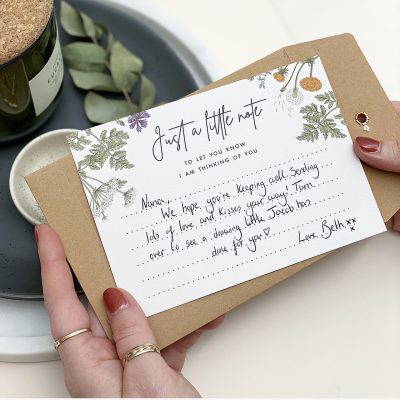 Just a little note
TO LET YOU KNOW
I AM THINKING OF YOU
Nana,
We hope you're keeping well. Sending
lots of love and kisses your way! Turn
over to see a drawing little Jacob has
done for you ♡
Love, Beth xxx